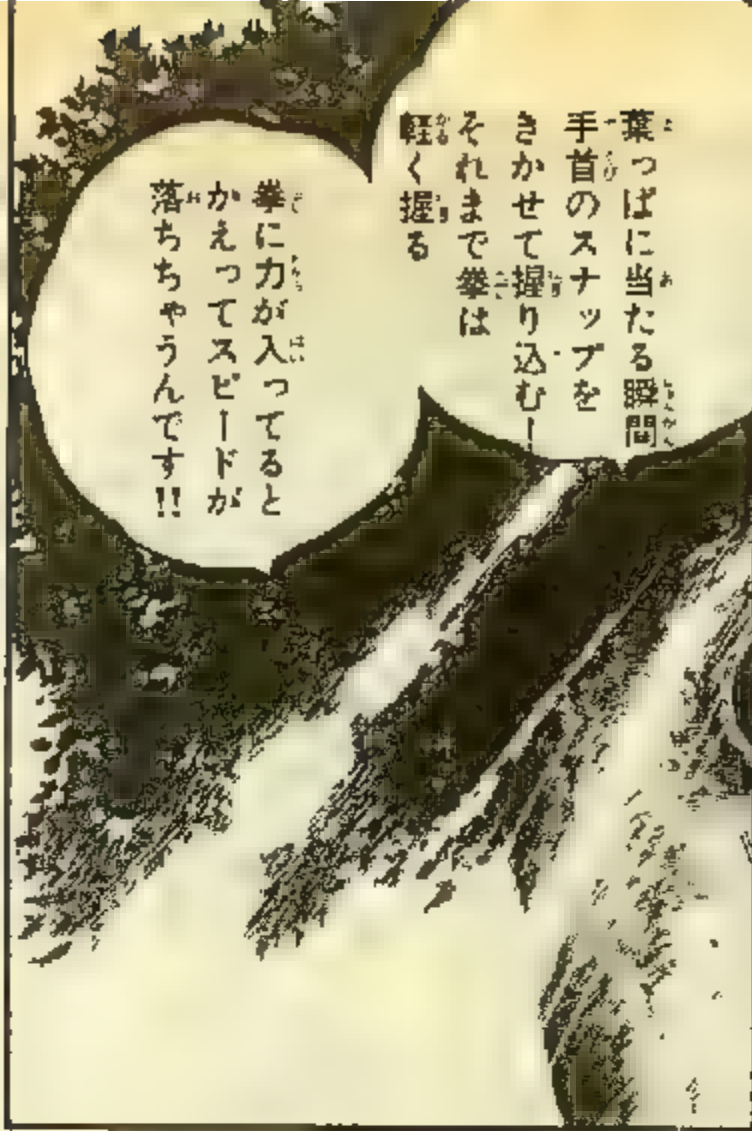 葉っぱに当たる瞬間
手首のスナップを
きかせて握り込む!
それまで拳は
軽く握る
拳に力が入ってると
かえってスピードが
落ちちゃうんです!!